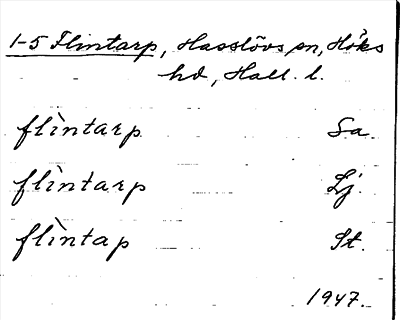 1-5 Flintarp, Hasslövs sn, Höks
hd, Hall. l.
flìntarp Sa.
flìntarp Lj.
flìntap St.
1947.